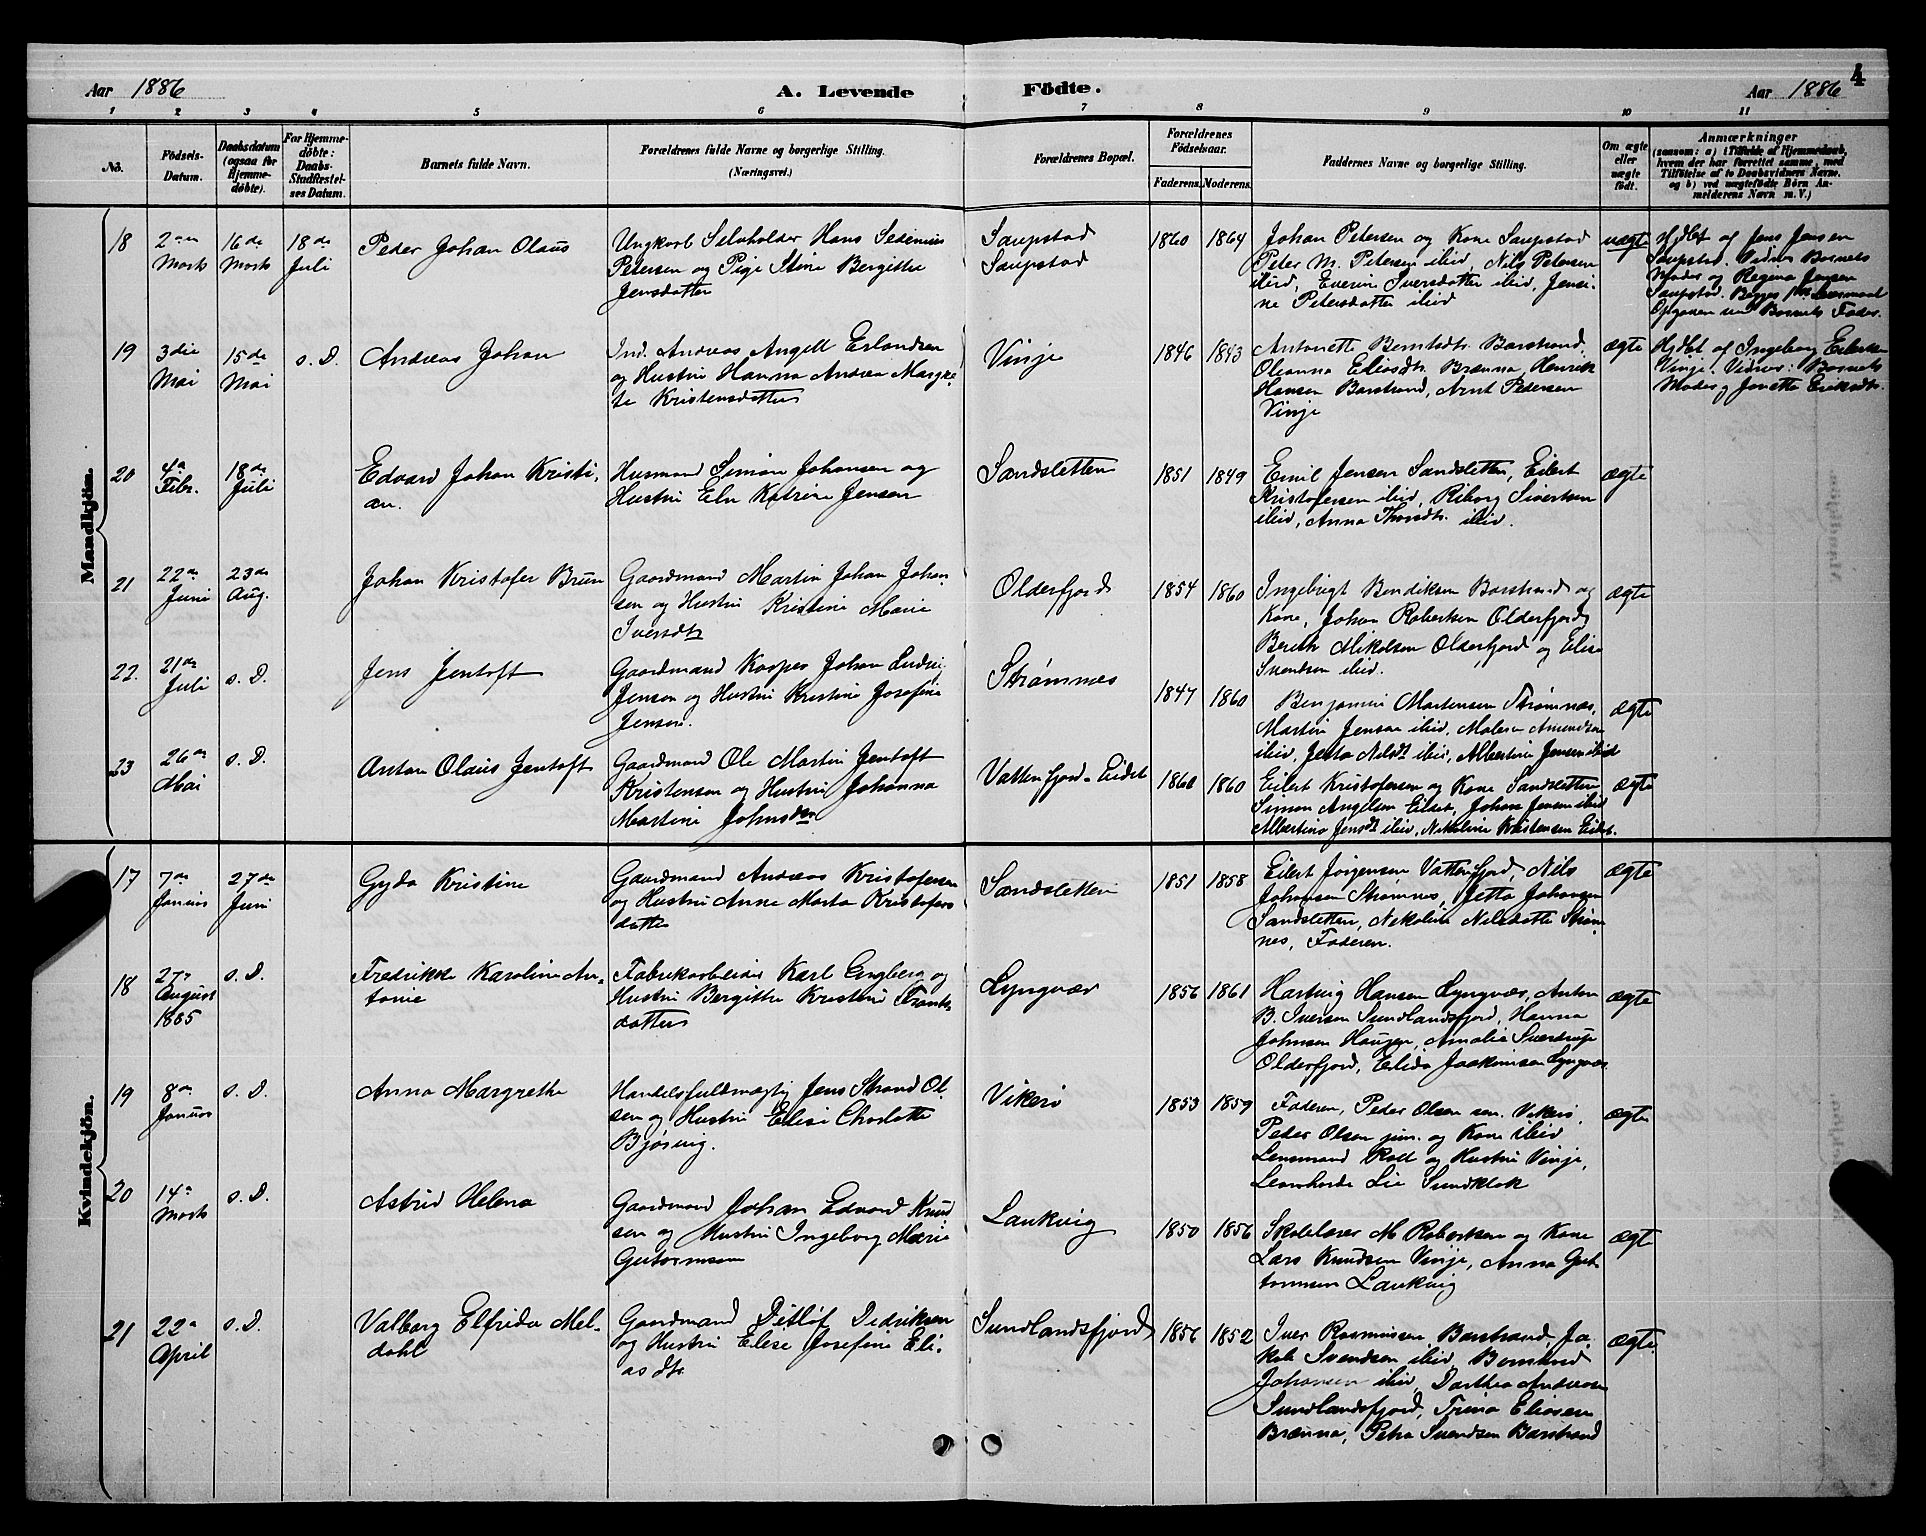 4
Aar 1886 A. Levende Födte. Aar 1886
1 2 3 4 5 6 7 8 9 10 11
No. Födsels-Datum. Daabsdatum (ogsaa for Hjemme-döbte). For Hjemme-döbte: Daabs-Stadfæstel-ses Datum. Barnets fulde Navn. Forældrenes fulde Navne og borgerlige Stilling. (Næringsvei.) Forældrenes Bopæl. Forældrenes Födselsaar. Faderens. Moderens. Faddernes Navne og borgerlige Stilling. Om ægte eller uægte födt. Anmærkninger (saasom: a) i Tilfælde af Hjemmedaab, hvem der har forrettet samme, med Tilföielse af to Daabsvidners Navne, og b) ved uægtefödte Börn An-melderens Navn m. V.)
Mandkjön.
18 2den Marts 16de Marts 18de Juli Peder Johan Olaus
Ungkarl Selvholder Hans Sedenius
Petersen og Pige Stine Bergitha
Jensdatter
Saupstad
Saupstad
1860 1864
Johan Petersen og Kone Saupstad
Peter M. Petersen ibid, Nils Petersen
ibid, Everine Iversdatter ibid, Jensi-
ne Petersdatter ibid
uægte
Hjdbt af Jens Jensen
Saupstad. Vidner Barnets
Moder og Regina Jensen
Saupstad. Begges 1ste Leiermaal
Opgiven som Barnets Fader.
19 3die Mai 15de Mai s. D. Andreas Johan
Ind. Andreas Angell Erlandsen
og Hustru Hanna Andrea Margre-
te Kristensdatter
Vinje
1846 1843
Antonette Berntsdtr. Barstrand,
Oleanna Eliasdtr. Brænna, Henrik
Hansen Barstrand, Arnt Pedersen
Vinje
ægte
Hjdbt af Ingeborg
Vinje. Vidner: Barnets
Moder og Jonetta Eriksdtr.
20 4de Febr. 18de Juli Edvard Johan Kristi-
an.
Husmand Simon Johansen og
Hustru Eln Katrine Jensen
Sandsletten
1851 1849
Emil Jensen Sandsletten, Eilert
Kristofersen ibid, Riborg Sivertsen
ibid, Anna Thorsdtr. ibid.
ægte
21 22de Juni 23de Aug. Johan Kristofer Brun
Gaardmand Martin Johan Johan-
sen og Hustru Kristine Marie
Iversdtr
Olderfjord
1854 1860
Ingebrigt Bendiksen Barstrand og
Kone, Johan Robertsen Olderfjord,
Berith Mikalsen Olderfjord og Elise
Svendsen ibid.
ægte
22. 21de Juli s. D. Jens Jentoft
Gaardmand Kasper Johan Ludvig
Jensen og Hustru Kristine Josefine
Jensen.
Strømnes
1847 1860
Benjamin Martensen Strømnes,
Martin Jensen ibid, Malene Amundsen
ibid, Jetta Nilsdt ibid, Albertine Jensen ibid
ægte
23 26de Mai s. D. Anton Olaus Jentoft
Gaardmand Ole Martin Jentoft
Kristensen og Hustru Johanna
Martine Johnsdtr
Vattenfjord-Eidet
1860 1860
Eilert Kristofersen og Kone Sandsletten
Simon Angelsen Eidet, Johan Jensen ibid
Albertine Jensdt ibid, Nikoline Kristensen Eidet.
ægte
Kvindekjön.
17 7de Januar 27de Juni Gyda Kristine
Gaardmand Andreas Kristofersen
og Hustru Anne Marta Kristofers-
datter
Sandsletten
1851 1858
Eilert Jørgensen Vattenfjord, Nils
Johansen Strømnes, Jetta Johansen
Sandsletten, Nekoline Nilsdatter Strøm-
nes, Faderen.
ægte
18 27de August 1885 s. D. Fredrikke Karoline An-
tonie
Fabrikarbeider Karl Engberg og
Hustru Bergitte Kristine Frants-
datter
Lyngvær
1856 1861
Hartvig Hansen Lyngvær, Anton
B. Iversen Sundlandsfjord, Hanna
Johnsen Haugen, Amalie Sverdrup
Olderfjord, Elida Joakimsen Lyngvær
ægte
19 8de Januar s. D. Anna Margrethe
Handelsfuldmægtig Jens Strand Ol-
sen og Hustru Elise Charlotte
Bjørvig.
Vikerø
1853 1859
Faderen, Peder Olsen sen. Vikerø,
Peder Olsen jun. og Kone ibid
Lensmand Roll og Hustru Vinje,
Leonharda Lie Sundklak
ægte
20 14de Marts s. D. Astrid Helena
Gaardmand Johan Edvard Knud-
sen og Hustru Ingeborg Marie
Gutormsen
Laukvig
1850 1856
Skolelærer M Robertsen og Kone
Lars Knudsen Vinje, Anna Gut-
tormsen Laukvig
ægte
21 22de April s. D. Valborg Elfrida Mel-
dahl
Gaardmand Ditlef Didriksen
og Hustru Elise Josefine Eli-
asdtr
Sundlandsfjord
1856 1852
Iver Rasmussen Barstrand, Ja-
kob Svendsen ibid, Bernhard
Johansen ibid, Dorthea Andreasen
Sundlandsfjord, Trine Eliasen
Brænna, Petra Svendsen Barstrand
ægte.